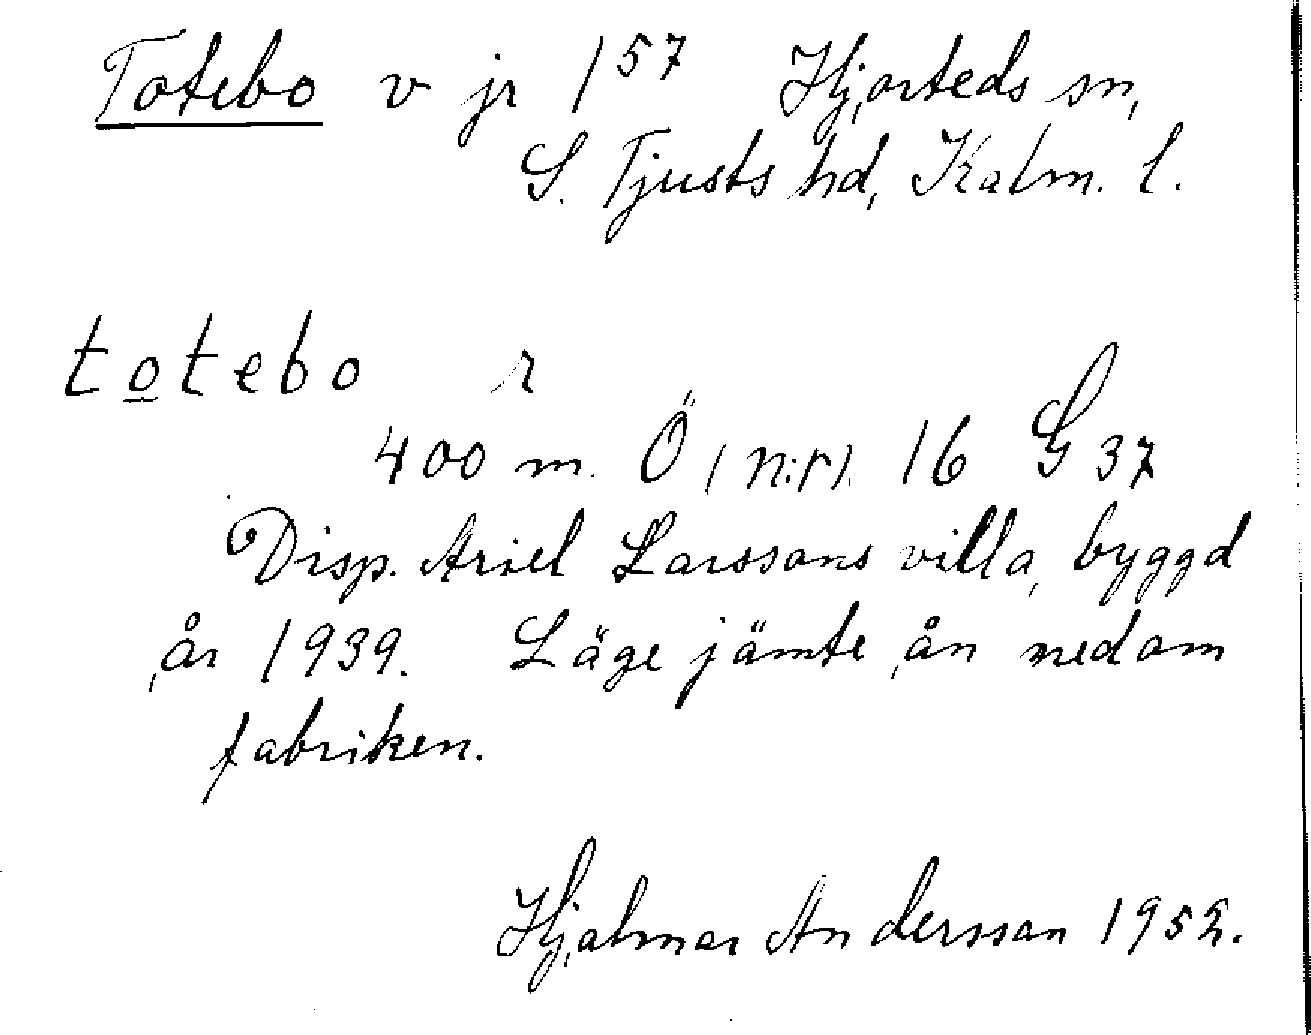 Totebo v jr 157 Hjorteds sn,
S. Tjusts hd, Kalm. l.
totebo r
400 m. Ö (n:r). 16 G 37
Disp. Ariel Larssons villa, byggd
år 1939. Läge jämte ån nedom
fabriken.
Hjalmar Andersson 1952.